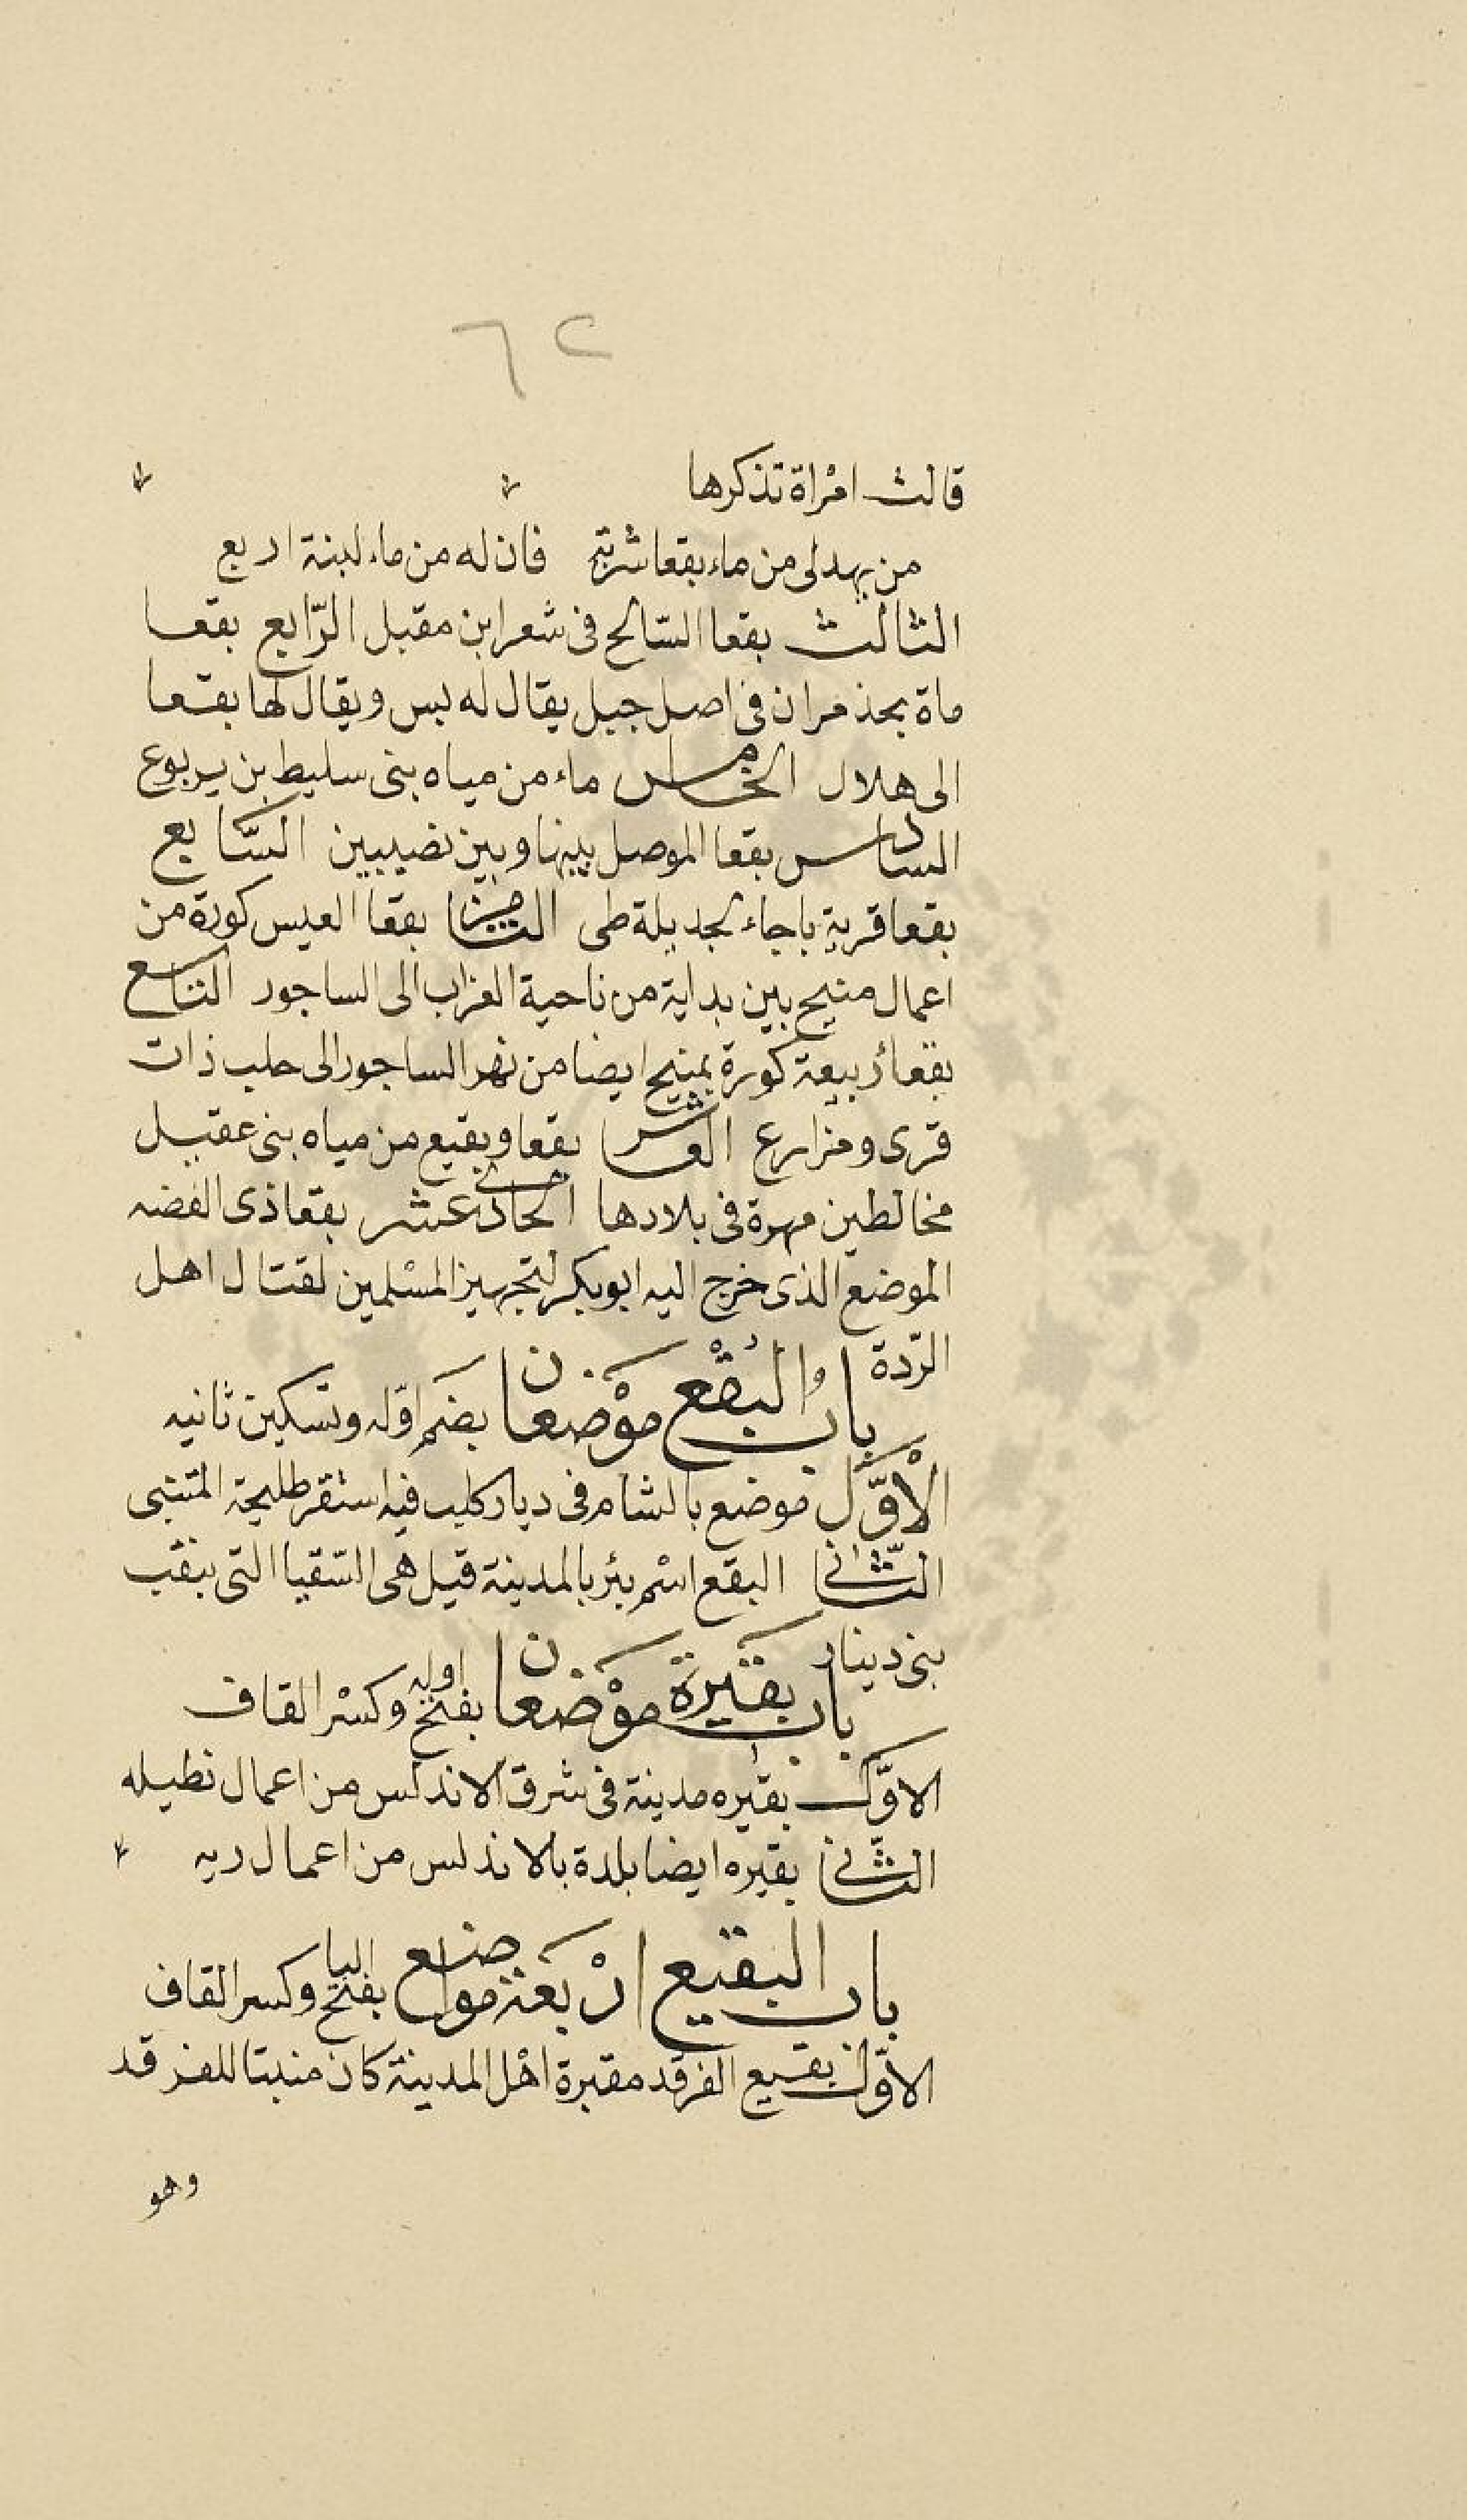 ٦٢
قالت امْراة تذكرها
من يهد لى من ماء بقعا شربة فان له من ماء لبنة اربع
الثالث بقعا السّالح فى شعر ابن مقبل الرّابع بقعا
ماة بحذ مران فى اصل جبل يقال له بس ويقال لها بقعا
الى هلال الخامس ماء من مياه بنى سليط بن يربوع
السادس بقعا الموصل بينها وبين نصيبين السّابع
بقعا قرية باجاء لجديلة طى الثامن بقعا العيس كورة من
اعمال منبج بين بداية من ناحية الفراب الى الساجور التاسع
بقعا ربيعة كورة بمنبج ايضا من نهر الساجور الى حلب ذات
قرى ومزارع العاشر بقعا وبقيع من مياه بنى عقيل
مخالطين مهرة فى بلادها الحادى عشر بقعا ذى القصه
الموضع الذى خرج اليه ابو بكر لتجهيز المسْلمين لقتال اهل
الرّدة
باب البُقْع موْضعان بضم اوّله وتسكين ثانيه
الْاوَّل موضع بالشام فى ديار كلب فيه استقر طليحة المتنبى
الثّانى البقع اسْم بئر بالمدينة قيل هى السّقيا التى بنقب
بنى دينار
باب بقيرة موْضعان بفتح اوله وكسْر القاف
الاوَّل بقيره مدينة فى شرق الاندلس من اعمال تطيله
الثّانى بقيره ايضا بلدة بالاندلس من اعمال ريه
باب البقيع ارْبعة مواضع بفتح البا وكسر القاف
الاوّل بقيع الغرقد مقبرة اهْل المدينة كان منبتا للغرقد
وهو